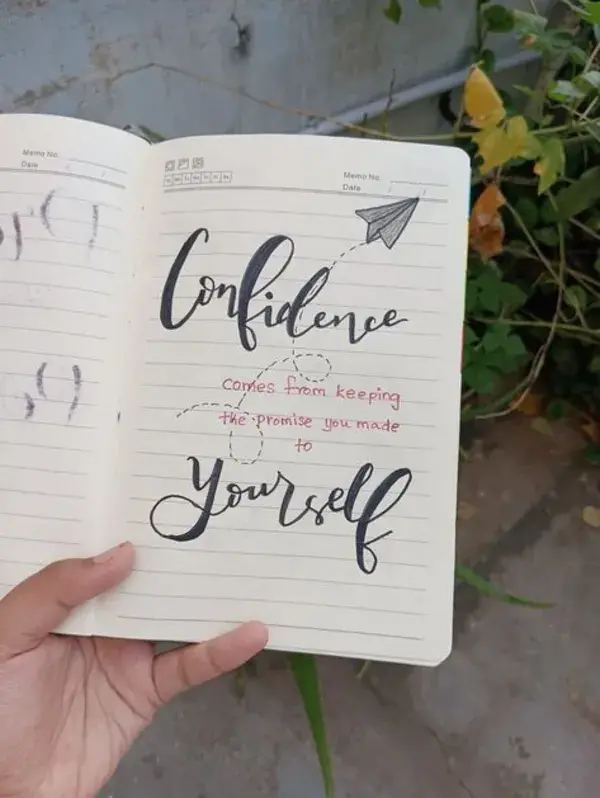 Memo No.
Date
Memo No.
Date
Confidence
comes from keeping
the promise you made
to
Yourself